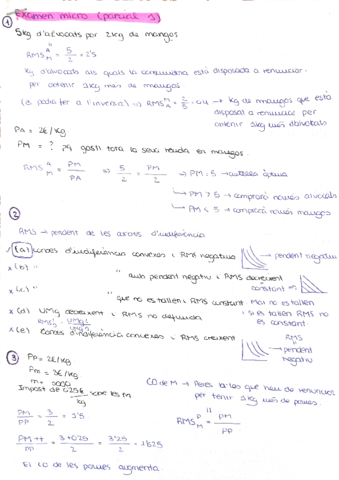 Examen micro (parcial 1)
① 5kg d'alvocats per 2kg de mangos
RMS A M = 5/2 = 2'5
Kg d'alvocats als quals la consumidora està disposada a renunciar
per obtenir 1kg més de mangos.
(es podia fer a l'inversa) → RMS = 2/5 = 0'4 → kg de mangos que està
disposat a renunciar per
obtenir 1kg més d'alvocats
PA = 2€/kg
PM = ? pq gasti tota la seva renda en mangos.
RMS A M = PM/PA ⇒ 5/2 = PM/2 ⇒ PM = 5 → cistella òptima
↳ PM > 5 → comprarà només alvocats
↳ PM < 5 → comprarà només mangos
②
RMS → pendent de les corbes d'indiferència
(a) corbes d'indiferència convexes i RMS negativa → pendent negatiu
x (b) " amb pendent negatiu i RMS decreixent
constant
x (c) " que no es tallen i RMS constant Mai no es tallen
x (d) UMg decreixent i RMS no definida i si es tallen RMS no
és constant
x (e) Corbes d'indiferència convexes i RMS creixent
RMS
→ pendent
negatiu
③ PP = 2€/kg
Pm = 3€/kg
m = 3000
Impost de 0'25€/kg sobre les M
PM/PP = 3/2 = 1'5
PM+t/PP = 3+0'25/2 = 3'25/2 = 1'625
El CO de les pomes augmenta.
CO de M → Peres a les que heu de renunciar
per tenir 1kg més de pomes
RMS P M = PM/PP